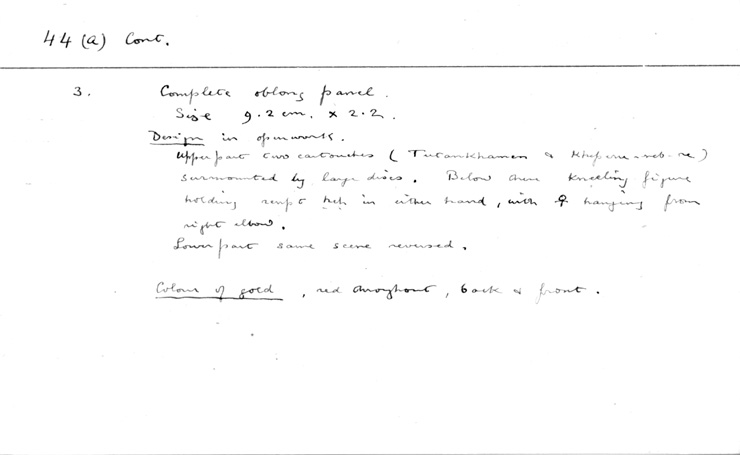 44 (a) Cont.
3.
Complete oblong panel.
Size 9.2 cm. x 2.2.
Design in openwork.
Upper part two cartouches (Tutankhamen & Kheperu-neb-re)
surmounted by large discs. Below them kneeling figure
holding renpt heh in either hand, with ☥ hanging from
right elbow.
Lower part same scene reversed.
Colour of gold, red throughout, back & front.